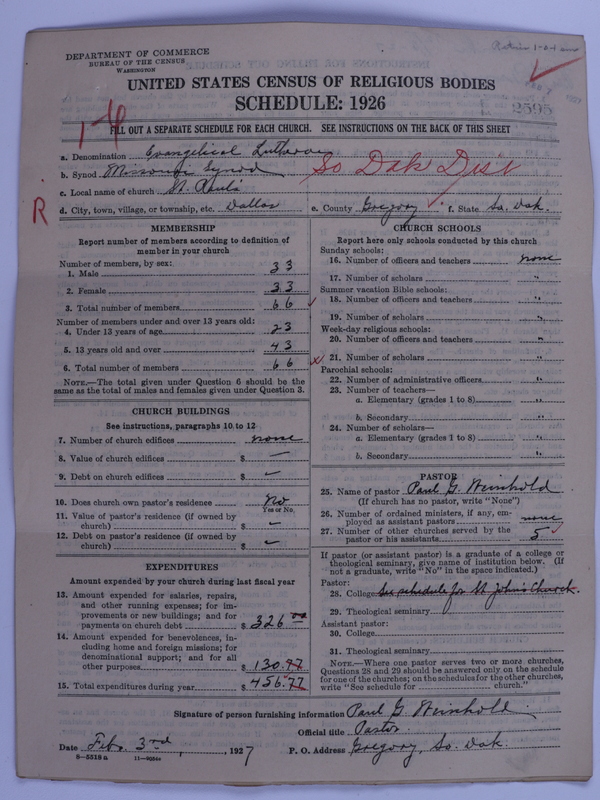 DEPARTMENT OF COMMERCE
BUREAU OF THE CENSUS
WASHINGTON
UNITED STATES CENSUS OF RELIGIOUS BODIES
SCHEDULE: 1926
2595
FILL OUT A SEPARATE SCHEDULE FOR EACH CHURCH. SEE INSTRUCTIONS ON THE BACK OF THIS SHEET
a. Denomination Evangelical Lutheran
b. Synod Missouri Synod So Dak Dist
c. Local name of church St. Pauls
R
d. City, town, village, or township, etc. Dallas e. County Gregory f. State So. Dak.
MEMBERSHIP
Report number of members according to definition of
member in your church
Number of members, by sex:
1. Male 33
2. Female 33
3. Total number of members 66
Number of members under and over 13 years old:
4. Under 13 years of age 23
5. 13 years old and over 43
6. Total number of members 66
NOTE.—The total given under Question 6 should be the
same as the total of males and females given under Question 3.
CHURCH BUILDINGS
See instructions, paragraphs 10 to 12
7. Number of church edifices none
8. Value of church edifices $ —
9. Debt on church edifices $ —
10. Does church own pastor's residence No
Yes or No
11. Value of pastor's residence (if owned by
church) $ —
12. Debt on pastor's residence (if owned by
church) $ —
EXPENDITURES
Amount expended by your church during last fiscal year
13. Amount expended for salaries, repairs,
and other running expenses; for im-
provements or new buildings; and for
payments on church debt $ 326.00
14. Amount expended for benevolences, in-
cluding home and foreign missions; for
denominational support; and for all
other purposes $ 130.77
15. Total expenditures during year $ 456.77
CHURCH SCHOOLS
Report here only schools conducted by this church
Sunday schools:
16. Number of officers and teachers none
17. Number of scholars "
Summer vacation Bible schools:
18. Number of officers and teachers "
19. Number of scholars "
Week-day religious schools:
20. Number of officers and teachers "
21. Number of scholars "
Parochial schools:
22. Number of administrative officers "
23. Number of teachers—
a. Elementary (grades 1 to 8) "
b. Secondary "
24. Number of scholars—
a. Elementary (grades 1 to 8) "
b. Secondary "
PASTOR
25. Name of pastor Paul G. Weinhold
(If church has no pastor, write "None")
26. Number of ordained ministers, if any, em-
ployed as assistant pastors none
27. Number of other churches served by the
pastor or his assistants 5
If pastor (or assistant pastor) is a graduate of a college or
theological seminary, give name of institution below. (If
not a graduate, write "No" in the space indicated.)
Pastor:
28. College See schedule for St. John's Church.
29. Theological seminary
Assistant pastor:
30. College
31. Theological seminary
NOTE.—Where one pastor serves two or more churches,
Questions 28 and 29 should be answered only on the schedule
for one of the churches; on the schedules for the other churches,
write "See schedule for church."
Signature of person furnishing information Paul G. Weinhold
Official title Pastor
Date Feb. 3rd, 1927 P. O. Address Gregory, So. Dak.
8-5518 a